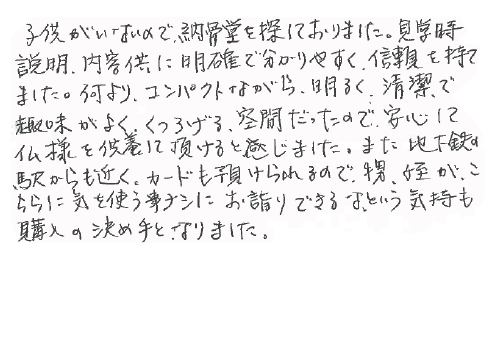 子供がいないので、納骨堂を探しておりました。見学時
説明、内容供に明確で分かりやすく、信頼を持て
ました。何より、コンパクトながら、明るく、清潔で
趣味がよく、くつろげる、空間だったので、安心して
仏様を供養して頂けると感じました。また地下鉄の
駅からも近く。カードも預けられるので、甥、姪が、こ
ちらに気を使う事ナシにお詣りできるなという気持も
購入の決め手となりました。